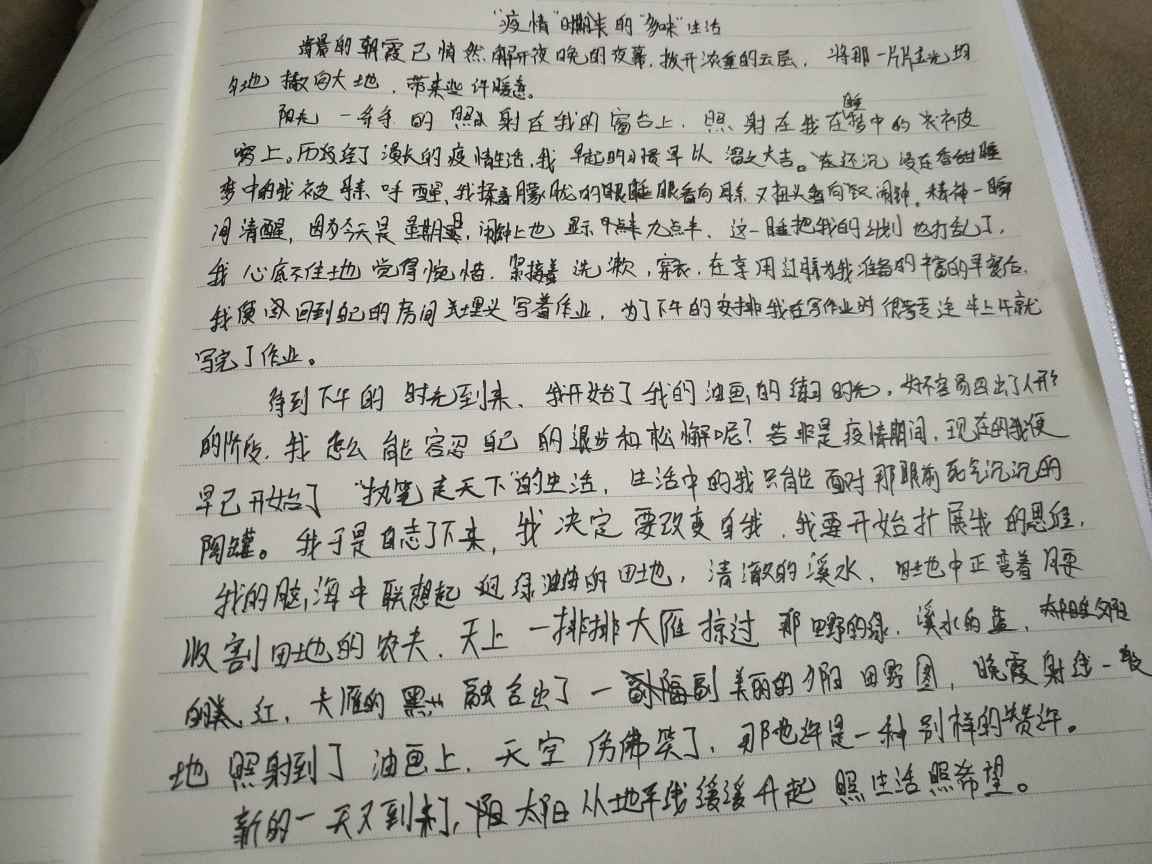 "疫情"时期来的"多味"生活
清晨的朝霞已悄然解开夜晚的夜幕,拨开浓重的云层,将那一片片主光均
匀地撒向大地,带来些许暖意。
阳光一寸寸的照射在我的窗台上,照射在我在睡梦中的衣衣皮
窝上。历经了漫长的疫情生活,我早起的习惯早以溜之大吉。在还沉浸在香甜睡
梦中的我被呼醒,我揉着朦胧的眼睡眼看向又扭头看向闹钟,精神一瞬
间清醒,因为今天是星期,闹钟上也显示九点半,这一睡把我的计划也打乱了,
我心底不住地觉得惋惜,紧接着洗漱,穿衣,在享用过为我准备的丰富的早餐后,
我便回到自己的房间写着作业,为了下午的安排我在写作业时很专连半上午就
写完了作业。
待到下午的时光到来,我开始了我的油画的练习时光,好不容易画出了人形
的阶段,我怎么能容忍自己的退步和松懈呢?若非是疫情期间,现在的我便
早已开始了"执笔走天下"的生活,生活中的我只能面对那眼前死气沉沉的
陶罐。我于是自志了下来,我决定要改变自我,我要开始扩展我的思维,
我的脑海中联想起绿油油的田地,清澈的溪水,田地中正弯着腰
收割田地的农夫,天上一排排大雁掠过那田野的绿,溪水的蓝,夕阳
的红,大雁的黑融合出了一副美丽的夕阳田野图,晚霞射线一般
地照射到了油画上,天空仿佛笑了,那也许是一种别样的赞许。
新的一天又到来了,太阳从地平线缓缓升起照生活照希望。